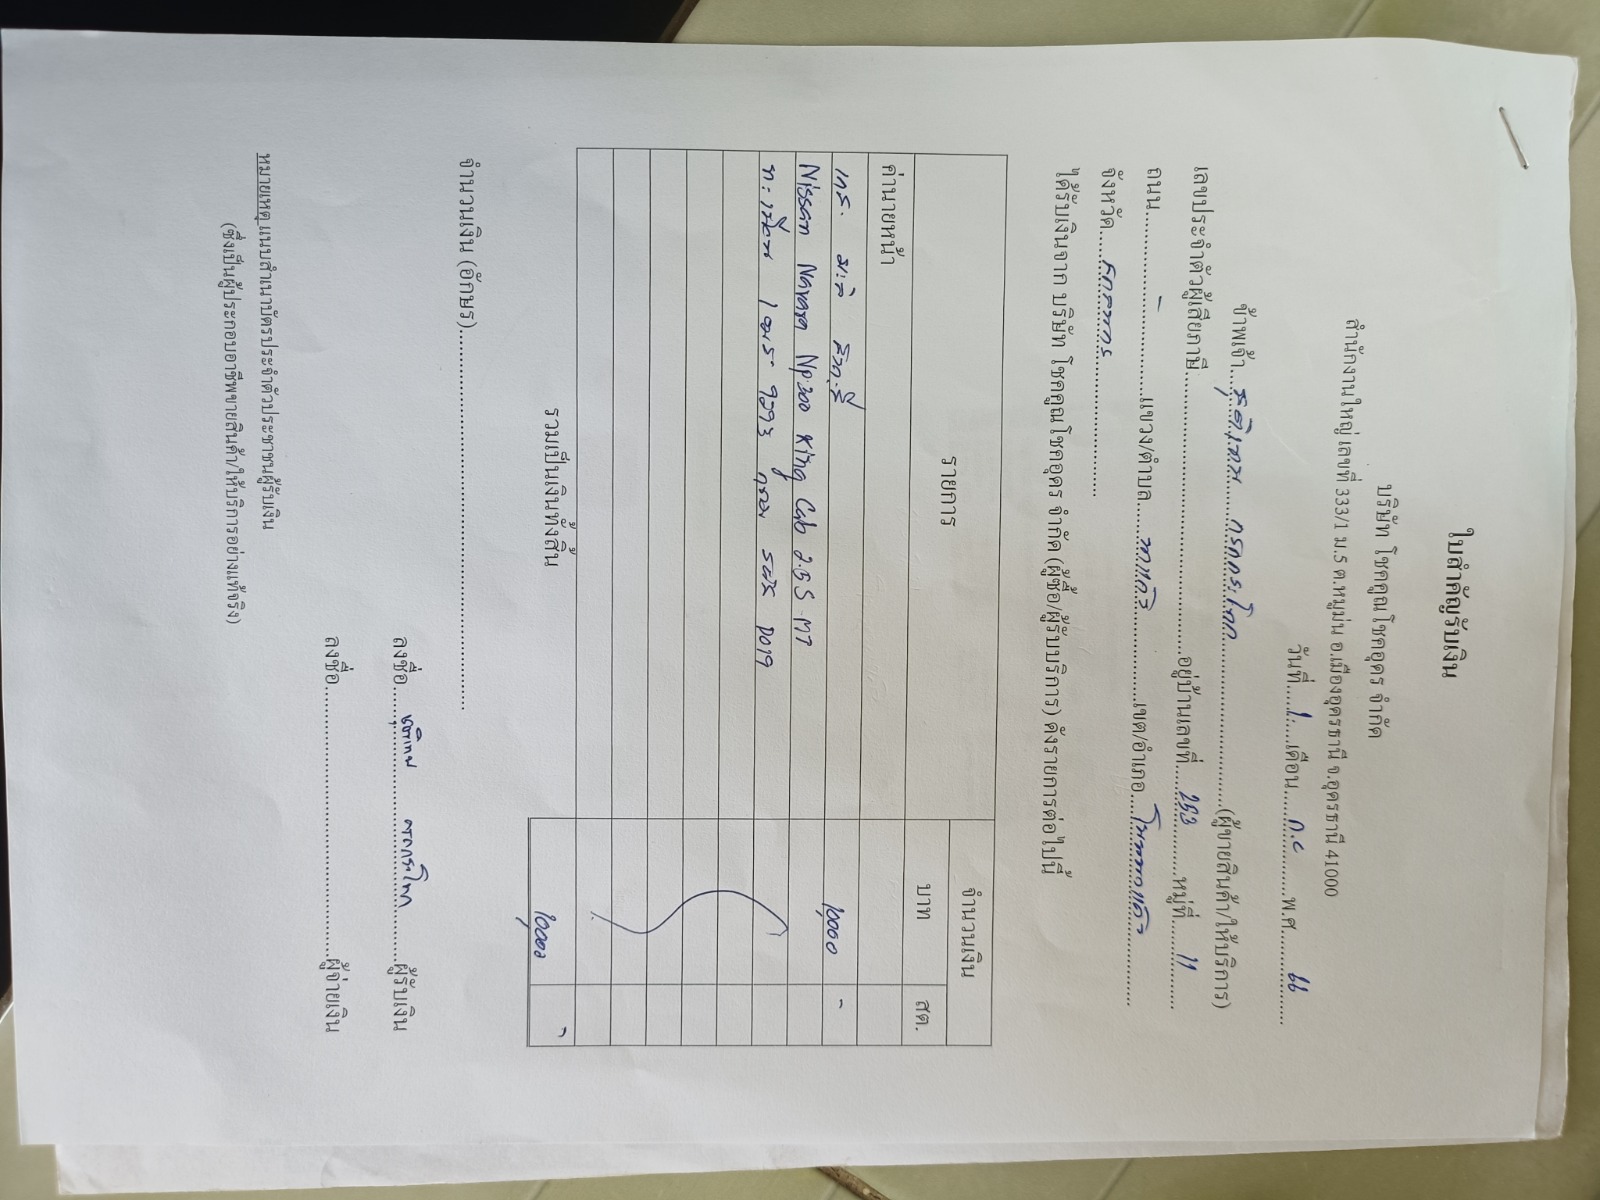 ใบสำคัญรับเงิน
บริษัท โชคคูณโชคอุดร จำกัด
สำนักงานใหญ่ เลขที่ 333/1 ม.5 ต.หมูม่น อ.เมืองอุดรธานี จ.อุดรธานี 41000
วันที่.....1.....เดือน.....ก.ค..........พ.ศ..........66
ข้าพเจ้า.....ชุติเทพ..........(ผู้ขายสินค้า/ให้บริการ)
เลขประจำตัวผู้เสียภาษี..............................อยู่บ้านเลขที่.....293..........หมู่ที่.....11
ถนน..........-..........แขวง/ตำบล....................เขต/อำเภอ.....
จังหวัด....................
ได้รับเงินจาก บริษัท โชคคูณโชคอุดร จำกัด (ผู้ซื้อ/ผู้รับบริการ) ดังรายการต่อไปนี้
รายการ จำนวนเงิน
บาท สต.
ค่านายหน้า
10,000 -
Nissan Navara Np300 King Cab 2.5 S MT
ทะเบียน 2019
รวมเป็นเงินทั้งสิ้น 10,000 -
จำนวนเงิน (อักษร)..................................................
ลงชื่อ.....ชุติเทพ..........ผู้รับเงิน
ลงชื่อ........................................ผู้จ่ายเงิน
หมายเหตุ แนบสำเนาบัตรประจำตัวประชาชนผู้รับเงิน
(ซึ่งเป็นผู้ประกอบอาชีพขายสินค้า/ให้บริการอย่างแท้จริง)